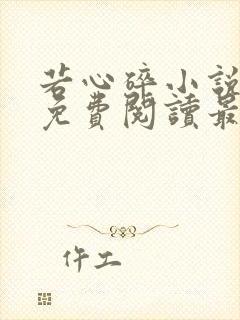 若心碎小說
免費閱讀最
仵工